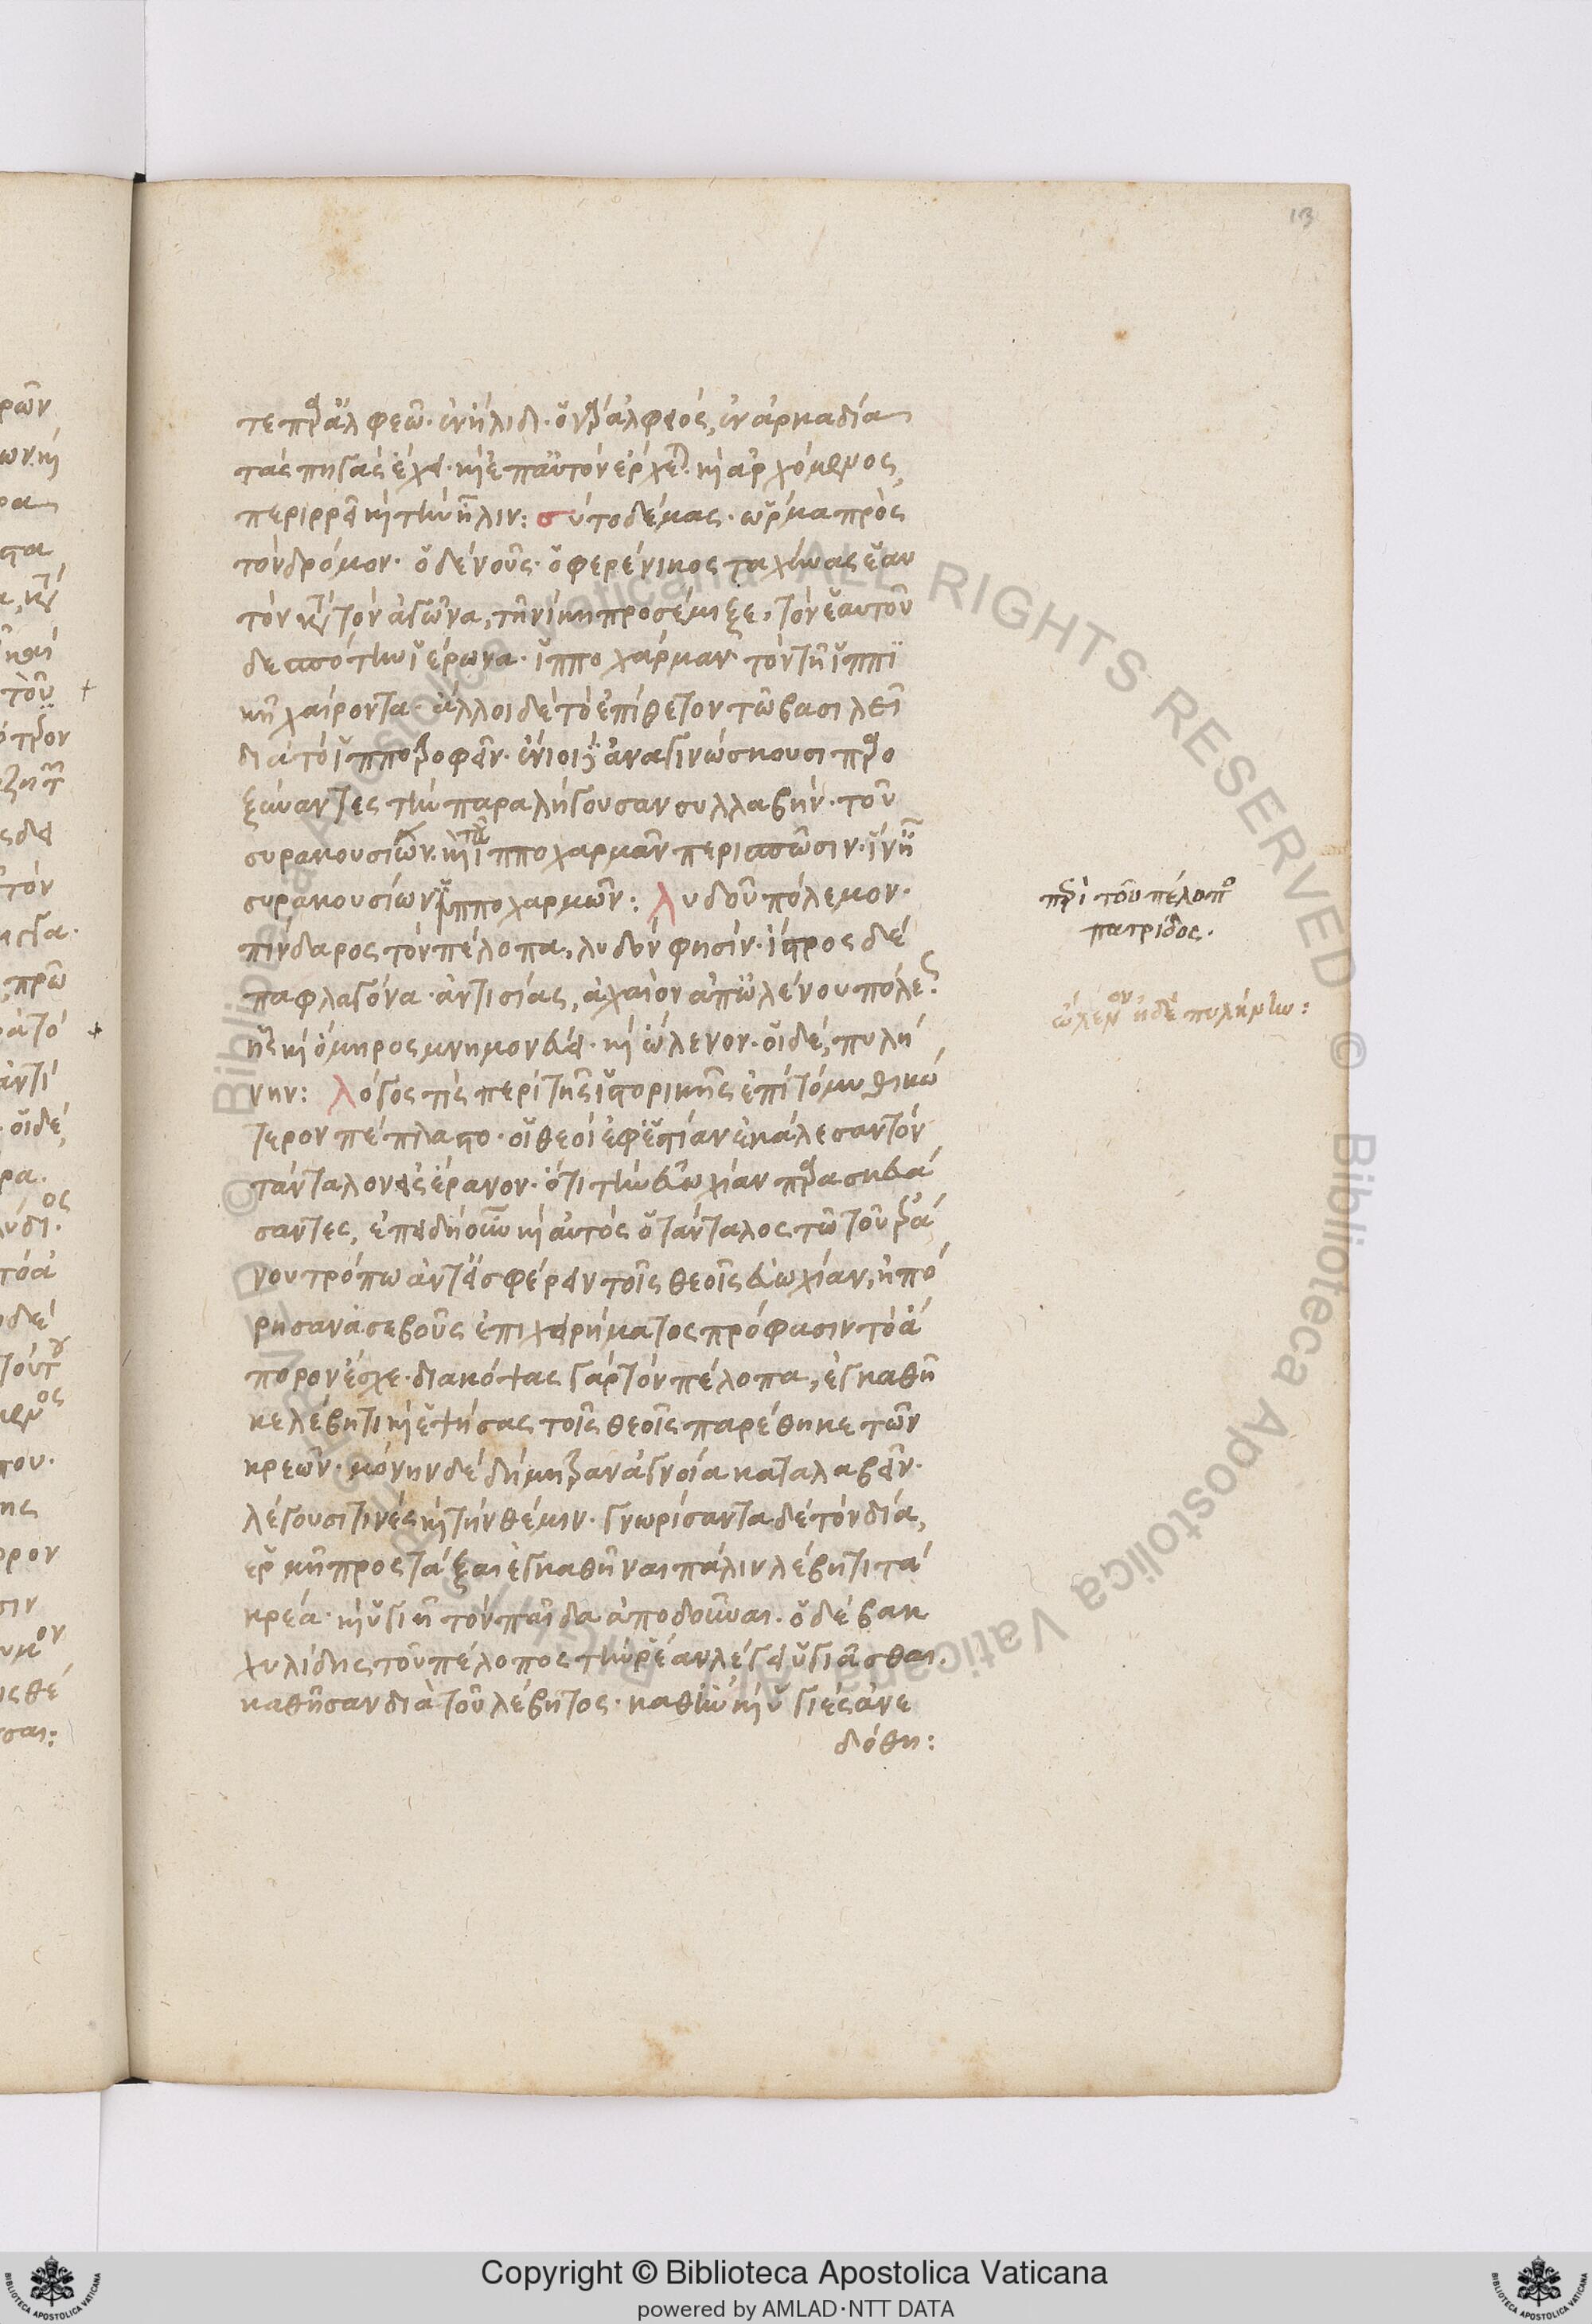 13
τε παρ' ἀλφεῶ· ἐν ἤλιδι· ὁ γὰρ ἀλφεός, ἐν ἀρκαδία
τὰς πηγὰς ἔχει· καὶ ἐπ' αὐτὸν ἔρχεται· καὶ ἀρχόμενος,
περιρρεῖ καὶ τὴν ἦλιν: σύτο δέμας· ὥρμα πρὸς
τὸν δρόμον· ὁ δὲ νοῦς· ὁ φερένικος ταχύνας ἑαυ
τὸν κατὰ τὸν ἀγῶνα, τῆ νίκη προσέμιξε, τὸν ἑαυτοῦ
δεσπότην ἱέρωνα· ἱπποχάρμαν τὸν τῆ ἱππι
κῆ χαίροντα· ἄλλοι δὲ τὸ ἐπίθετον τῶ βασιλεῖ
διὰ τὸ ἱπποτροφεῖν· ἔνιοι δὲ ἀναγινώσκουσι παρο
ξύναντες τὴν παραλήγουσαν συλλαβήν· τοῦ
συρακουσίων· καὶ τὸ ἱπποχαρμᾶν περισπῶσιν· ἵν' ἦ
συρακουσίων ἱπποχαρμῶν: λυδοῦ πόλεμον·
πίνδαρος τὸν πέλοπα, λυδόν φησίν· ἴστρος δέ
παφλαγόνα· ἀντισίας, ἀχαιὸν ἀπ' ὠλένου πόλεως·
ἧς καὶ ὅμηρος μνημονεύει· καὶ ὤλενον· οἱ δέ, πυλή
νην: λόγος τὶς περὶ τῆς ἱστορικῆς ἐπὶ τὸ μυθικώ
τερον πέπλαστο· οἱ θεοὶ ἐφ' ἑστίαν ἐκάλεσαν τὸν
τάνταλον εἰς ἔρανον· ὅτι τὴν εὐωχίαν παρασκευά
σαντες, ἐπειδὴ οὖν καὶ αὐτὸς ὁ τάνταλος τῶ τοῦ ἐρά
νου τρόπω ἀντεισφέρειν τοῖς θεοῖς εὐωχίαν, ἠπό
ρησαν ἀσεβοῦς ἐπιχειρήματος πρόφασιν τὸ ἄ
πορον ἔσχε· διακόψας γὰρ τὸν πέλοπα, ἐγκαθῆ
κε λέβητι καὶ ἑψήσας τοῖς θεοῖς παρέθηκε τῶν
κρεῶν· μόνην δὲ δήμητραν ἀγνοία καταλαβεῖν·
λέγουσι τινὲς καὶ τὴν θέμιν· γνωρίσαντα δὲ τὸν δία,
ἑρμῆ προστάξαι ἐγκαθῆναι πάλιν λέβητι τὰ
κρέα· καὶ ὑγιῆ τὸν παῖδα ἀποδοῦναι· ὁ δὲ βακ
χυλίδης τοῦ πέλοπος τὴν ῥέαν λέγει ὑγιᾶσθαι.
καθῆσαν διὰ τοῦ λέβητος· καθ' ἣν καὶ ὑγιὲς ἀνε
δόθη:
περὶ τοῦ πέλοπος
πατρίδος.
ὤλενον ἠδὲ πυλήνην: